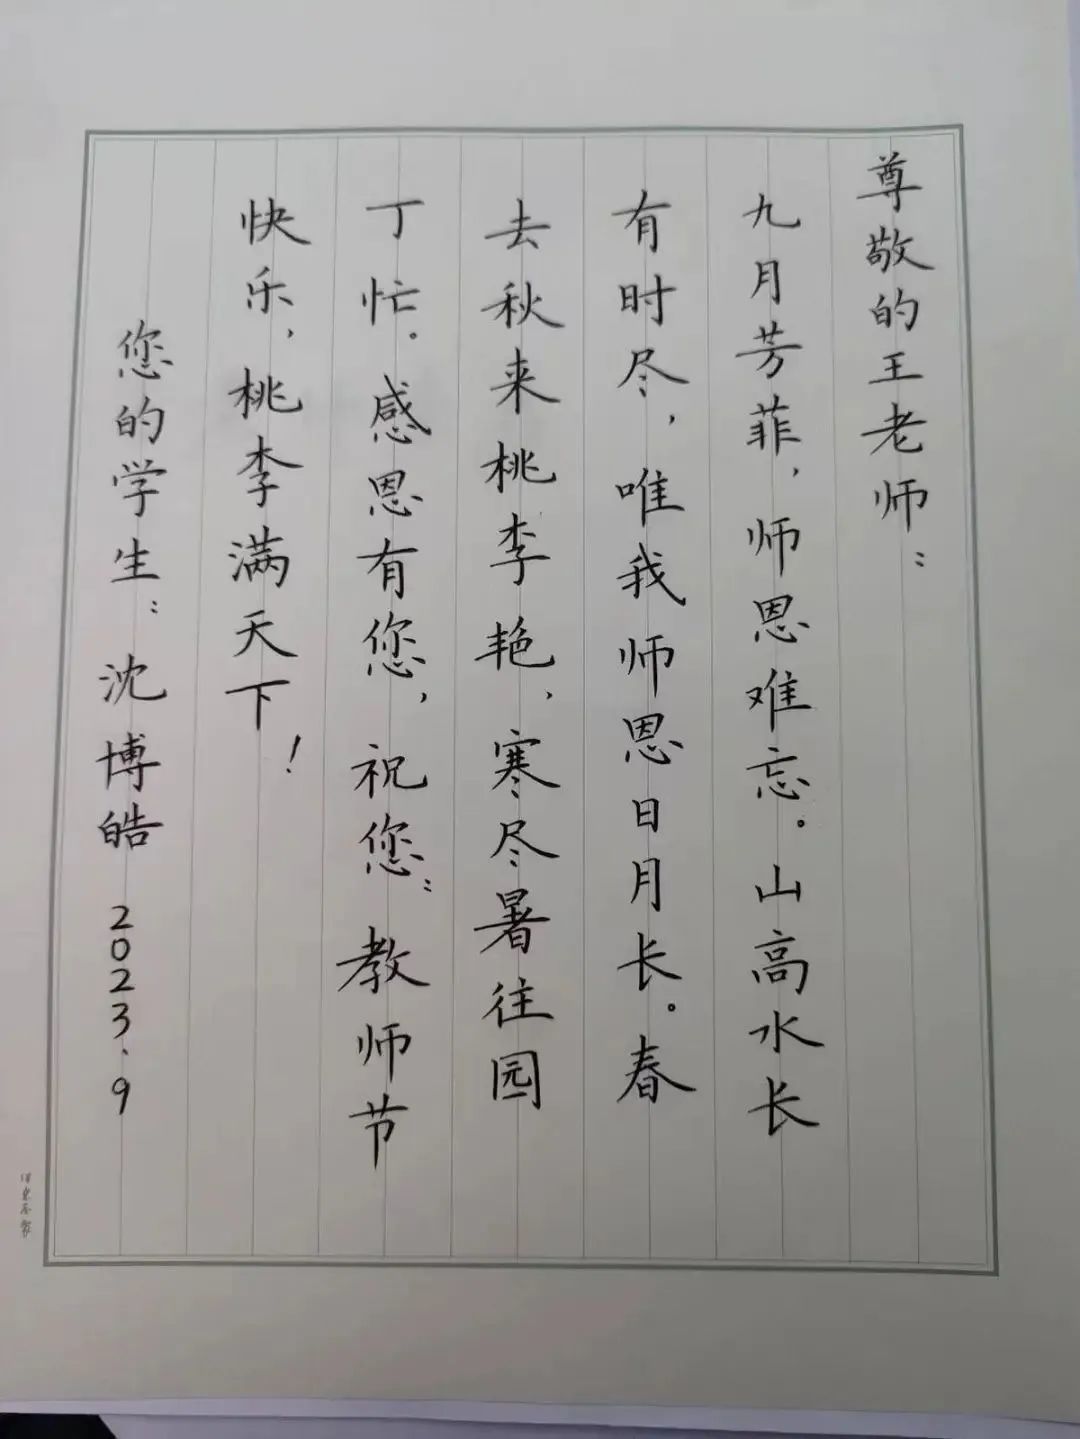 尊敬的王老师：
九月芳菲，师恩难忘。山高水长
有时尽，唯我师恩日月长。春
去秋来桃李艳，寒尽暑往园
丁忙。感恩有您，祝您：教师节
快乐，桃李满天下！
您的学生：沈博皓 2023.9